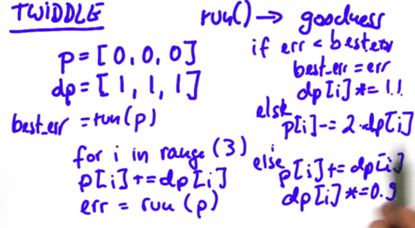 TWIDDLE
p = [0, 0, 0]
dp = [1, 1, 1]
best_err = run(p)
for i in range (3)
p[i] += dp[i]
err = run (p)
run() → goodness
if err < best err
best_err = err
dp[i] *= 1.1
else
p[i] -= 2·dp[i]
else p[i] += dp[i]
dp[i] *= 0.9